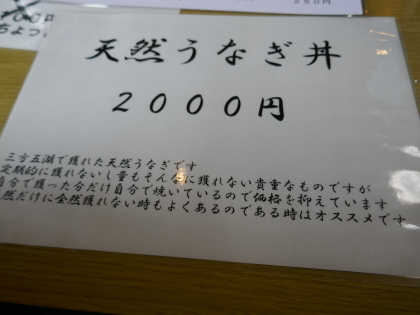 950円
天然うなぎ丼
2000円
三方五湖で獲れた天然うなぎです
定期的に獲れないし量もそんなに獲れない貴重なものですが
自分で獲った分だけ自分で焼いているので価格を抑えています
然だけに全然獲れない時もよくあるのである時はオススメです